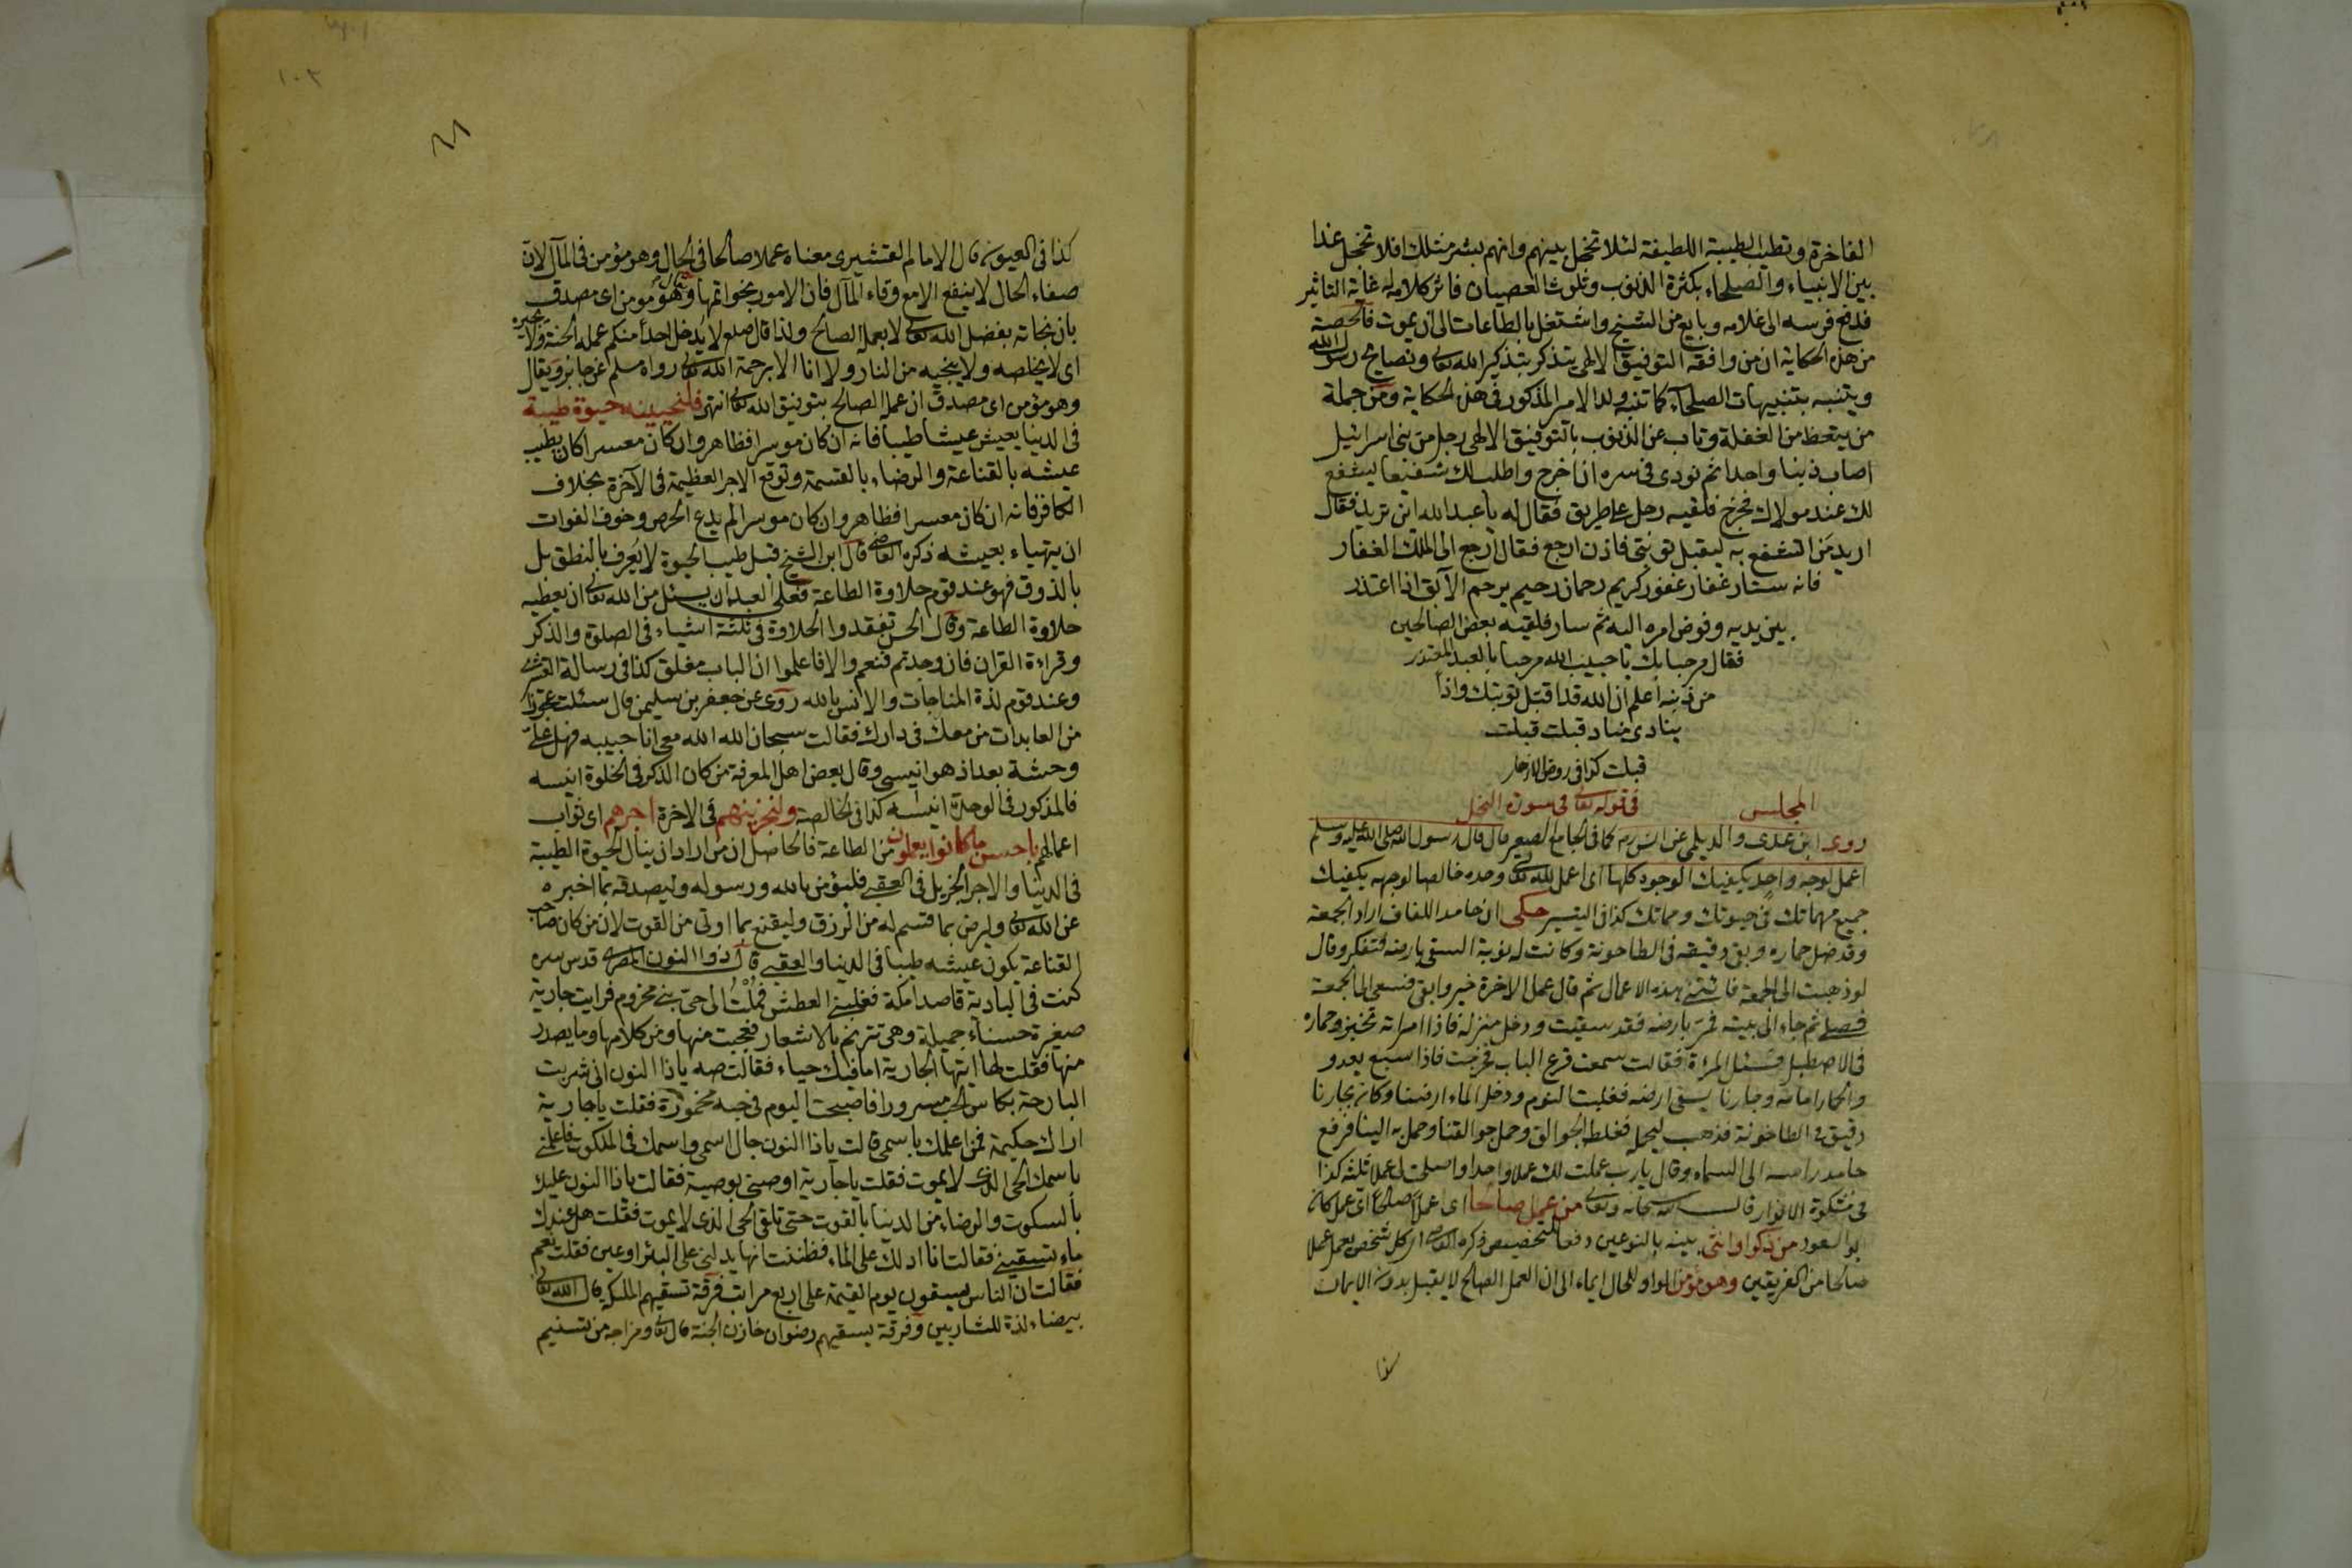 الفاخرة وتطيب الطيبة اللطيفة لئلا تخجل بينهم وانهم بشر مثلك افلا تخجل غدا
بين الانبياء والصلحاء بكثرة الذنوب وتلوث العصيان فاثر كلامه له غاية التاثير
فدفع فرسه الى غلامه وبايع من الشيخ واشتغل بالطاعات الى ان يموت فالحصة
من هذه الحكاية ان من وافقه التوفيق الالهى يتذكر بتذكير الله تعالى ونصايح رسول الله
ويتنبه بتنبيهات الصلحاء كما تنبه ولد الامير المذكور فى هذه الحكاية ومن جملة
من يتعظ من الغفلة وتاب عن الذنوب بالتوفيق الالهى رجل من بنى اسرائيل
اصاب ذنبا واحدا ثم نودى فى سره ان اخرج واطلب لك شفيعا يشفع
لك عند مولاك فخرج فلقيه رجل على طريق فقال له يا عبد الله اين تريد فقال
اريد من اتشفع به ليقبل توبتى فاذن ارجع فقال ارجع الى الملك الغفار
فانه ستار غفار غفور كريم رحمان رحيم يرحم الآبق اذا اعتذر
بين يديه وفوض امره اليه ثم سار فلقيه بعض الصالحين
فقال مرحبا بك يا حبيب الله مرحبا بالعبد المعتذر
من ذنبه اعلم ان الله قد اقبل توبتك واذا
ينادى مناد قبلت قبلت
قبلت كذا فى روض الازهار
المجلس فى قوله تعالى فى سورة النحل
روى ابن عدى والديلمى عن انس رض كما فى الجامع الصغير قال قال رسول الله صلى الله عليه وسلم
اعمل لوجه واحد يكفيك الوجوه كلها اى اعمل لله تعالى وحده خالصا لوجهه يكفيك
جميع مهماتك فى حيوتك ومماتك كذا فى التيسير حكى ان حامد اللفاف اراد الجمعة
وقد ضل حماره وبقى دقيقه فى الطاحونة وكانت له نوبة السقى بارضه فتفكر وقال
لو ذهبت الى الجمعة فاتتنى هذه الاعمال ثم قال عمل الاخرة خير وابقى فسعى الى الجمعة
فصلى ثم جاء الى بيته فمر بارضه فقد سقيت ودخل منزله فاذا امراته تخبز وحماره
فى الاصطبل فسئل المراة فقالت سمعت قرع الباب فخرجت فاذا سبع يعدو
والحمار امامه وجارنا يسقى ارضه فغلبت النوم ودخل الماء ارضنا وكان بجارنا
دقيق فى الطاحونة فذهب ليحمله فغلط الجوالق وحمل جوالقنا وحمل به الينا فرفع
حامد راسه الى السماء وقال يارب عملت لك عملا واحدا واصلحت لى عملا ثلثه كذا
فى مشكوة الانوار قال الله سبحانه وتعالى من عمل صالحا اى عملا صالحا اى عمل كان
ابو السعود من ذكر او انثى بينه بالنوعين دفعا للتخصيص ذكره القاضى اى كل شخص يعمل عملا
صالحا من الفريقين وهو مؤمن الواو للحال ايماء الى ان العمل الصالح لا يقبل بدون الايمان
كذا
١٠٢
كذا فى العيون قال الامام القشيرى معناه عملا صالحا فى الحال وهو مؤمن فى المآل لان
صفاء الحال لا ينفع الا مع وفاء المآل فان الامور بخواتمها وهو مؤمن اى مصدق
بان نجاته بفضل الله تعالى لا بعمله الصالح ولذا قال صلعم لا يُدخل احدا منكم عمله الجنة ولا يجيره
اى لا يخلصه ولا ينجيه من النار ولا انا الا برحمة الله تعالى رواه مسلم عن جابر ويقال
وهو مؤمن اى مصدق ان عمله الصالح بتوفيق الله تعالى انتهى فلنحيينه حيوة طيبة
فى الدنيا يعيش عيشا طيبا فانه ان كان موسرا فظاهر وان كان معسرا كان يطيب
عيشه بالقناعة والرضاء بالقسمة وتوقع الاجر العظيمة فى الآخرة بخلاف
الكافر فانه ان كان معسرا فظاهر وان كان موسرا لم يدع الحرص وخوف الفوات
ان يتهياء بعيشه ذكره القاضى قال ابن الشيخ قيل طيب الحيوة لا يُعرف بالنطق بل
بالذوق فهو عند قوم حلاوة الطاعة فعلى العبد ان يسئل من الله تعالى ان يعطيه
حلاوة الطاعة وقال الحسن تفقدوا الحلاوة فى ثلثة اشياء فى الصلوة والذكر
وقراءة القران فان وجدتم فنعم والا فاعلموا ان الباب مغلق كذا فى رسالة القشيرى
وعند قوم لذة المناجات والانس بالله روى عن جعفر بن سليمن قال سئلت عجوزا
من العابدات من معك فى دارك فقالت سبحان الله الله معى انا حبيبه فهل علىّ
وحشة بعد اذ هو انيسى وقال بعض اهل المعرفة من كان الذكر فى الخلوة انيسه
فالمذكور فى الوحدة انيسه كذا فى الخالصة ولنجزينهم فى الاخرة اجرهم اى ثواب
اعمالهم باحسن ما كانوا يعملون من الطاعة فالحاصل ان من اراد ان ينال الحيوة الطيبة
فى الدنيا والاجر الجزيل فى العقبى فليؤمن بالله ورسوله وليصدقه بما اخبره
عن الله تعالى وليرض بما قسم له من الرزق وليقنع بما اوتى من القوت لان من كان صاحب
القناعة يكون عيشه طيبا فى الدنيا والعقبى قال ذوا النون المصرى قدس سره
كنت فى البادية قاصدا مكة فغلبنى العطش فمُلْتُ الى حى بنى مخزوم فرايت جارية
صغيرة حسناء جميلة وهى تترنم بالاشعار فعجبت منها ومن كلامها وما يصدر
منها فقلت لها ايتها الجارية اما فيك حياء فقالت صه ياذا النون انى شربت
البارحة بكاس الحب مسرورا فاصبحت اليوم فى حبه مخمورة فقلت يا جارية
اراك حكيمة فمن اعلمك باسمى قالت ياذا النون جال اسمى واسمك فى الملكوت فاعلمنى
باسمك الحى الذى لا يموت فقلت يا جارية اوصنى بوصية فقالت ياذا النون عليك
بالسكوت والرضاء من الدنيا بالقوت حتى تلقى الحى الذى لا يموت فقلت هل عندك
ماء تسقينى فقالت انا ادلك على الماء فظننت انها يدلنى على البئر او عين فقلت نعم
فقالت ان الناس يسقون يوم القيمة على اربع مراتب فرقة تسقيهم الملئكة قال الله تعالى
بيضاء لذة للشاربين وفرقة يسقيهم رضوان خازن الجنة قال تعالى ومزاجه من تسنيم